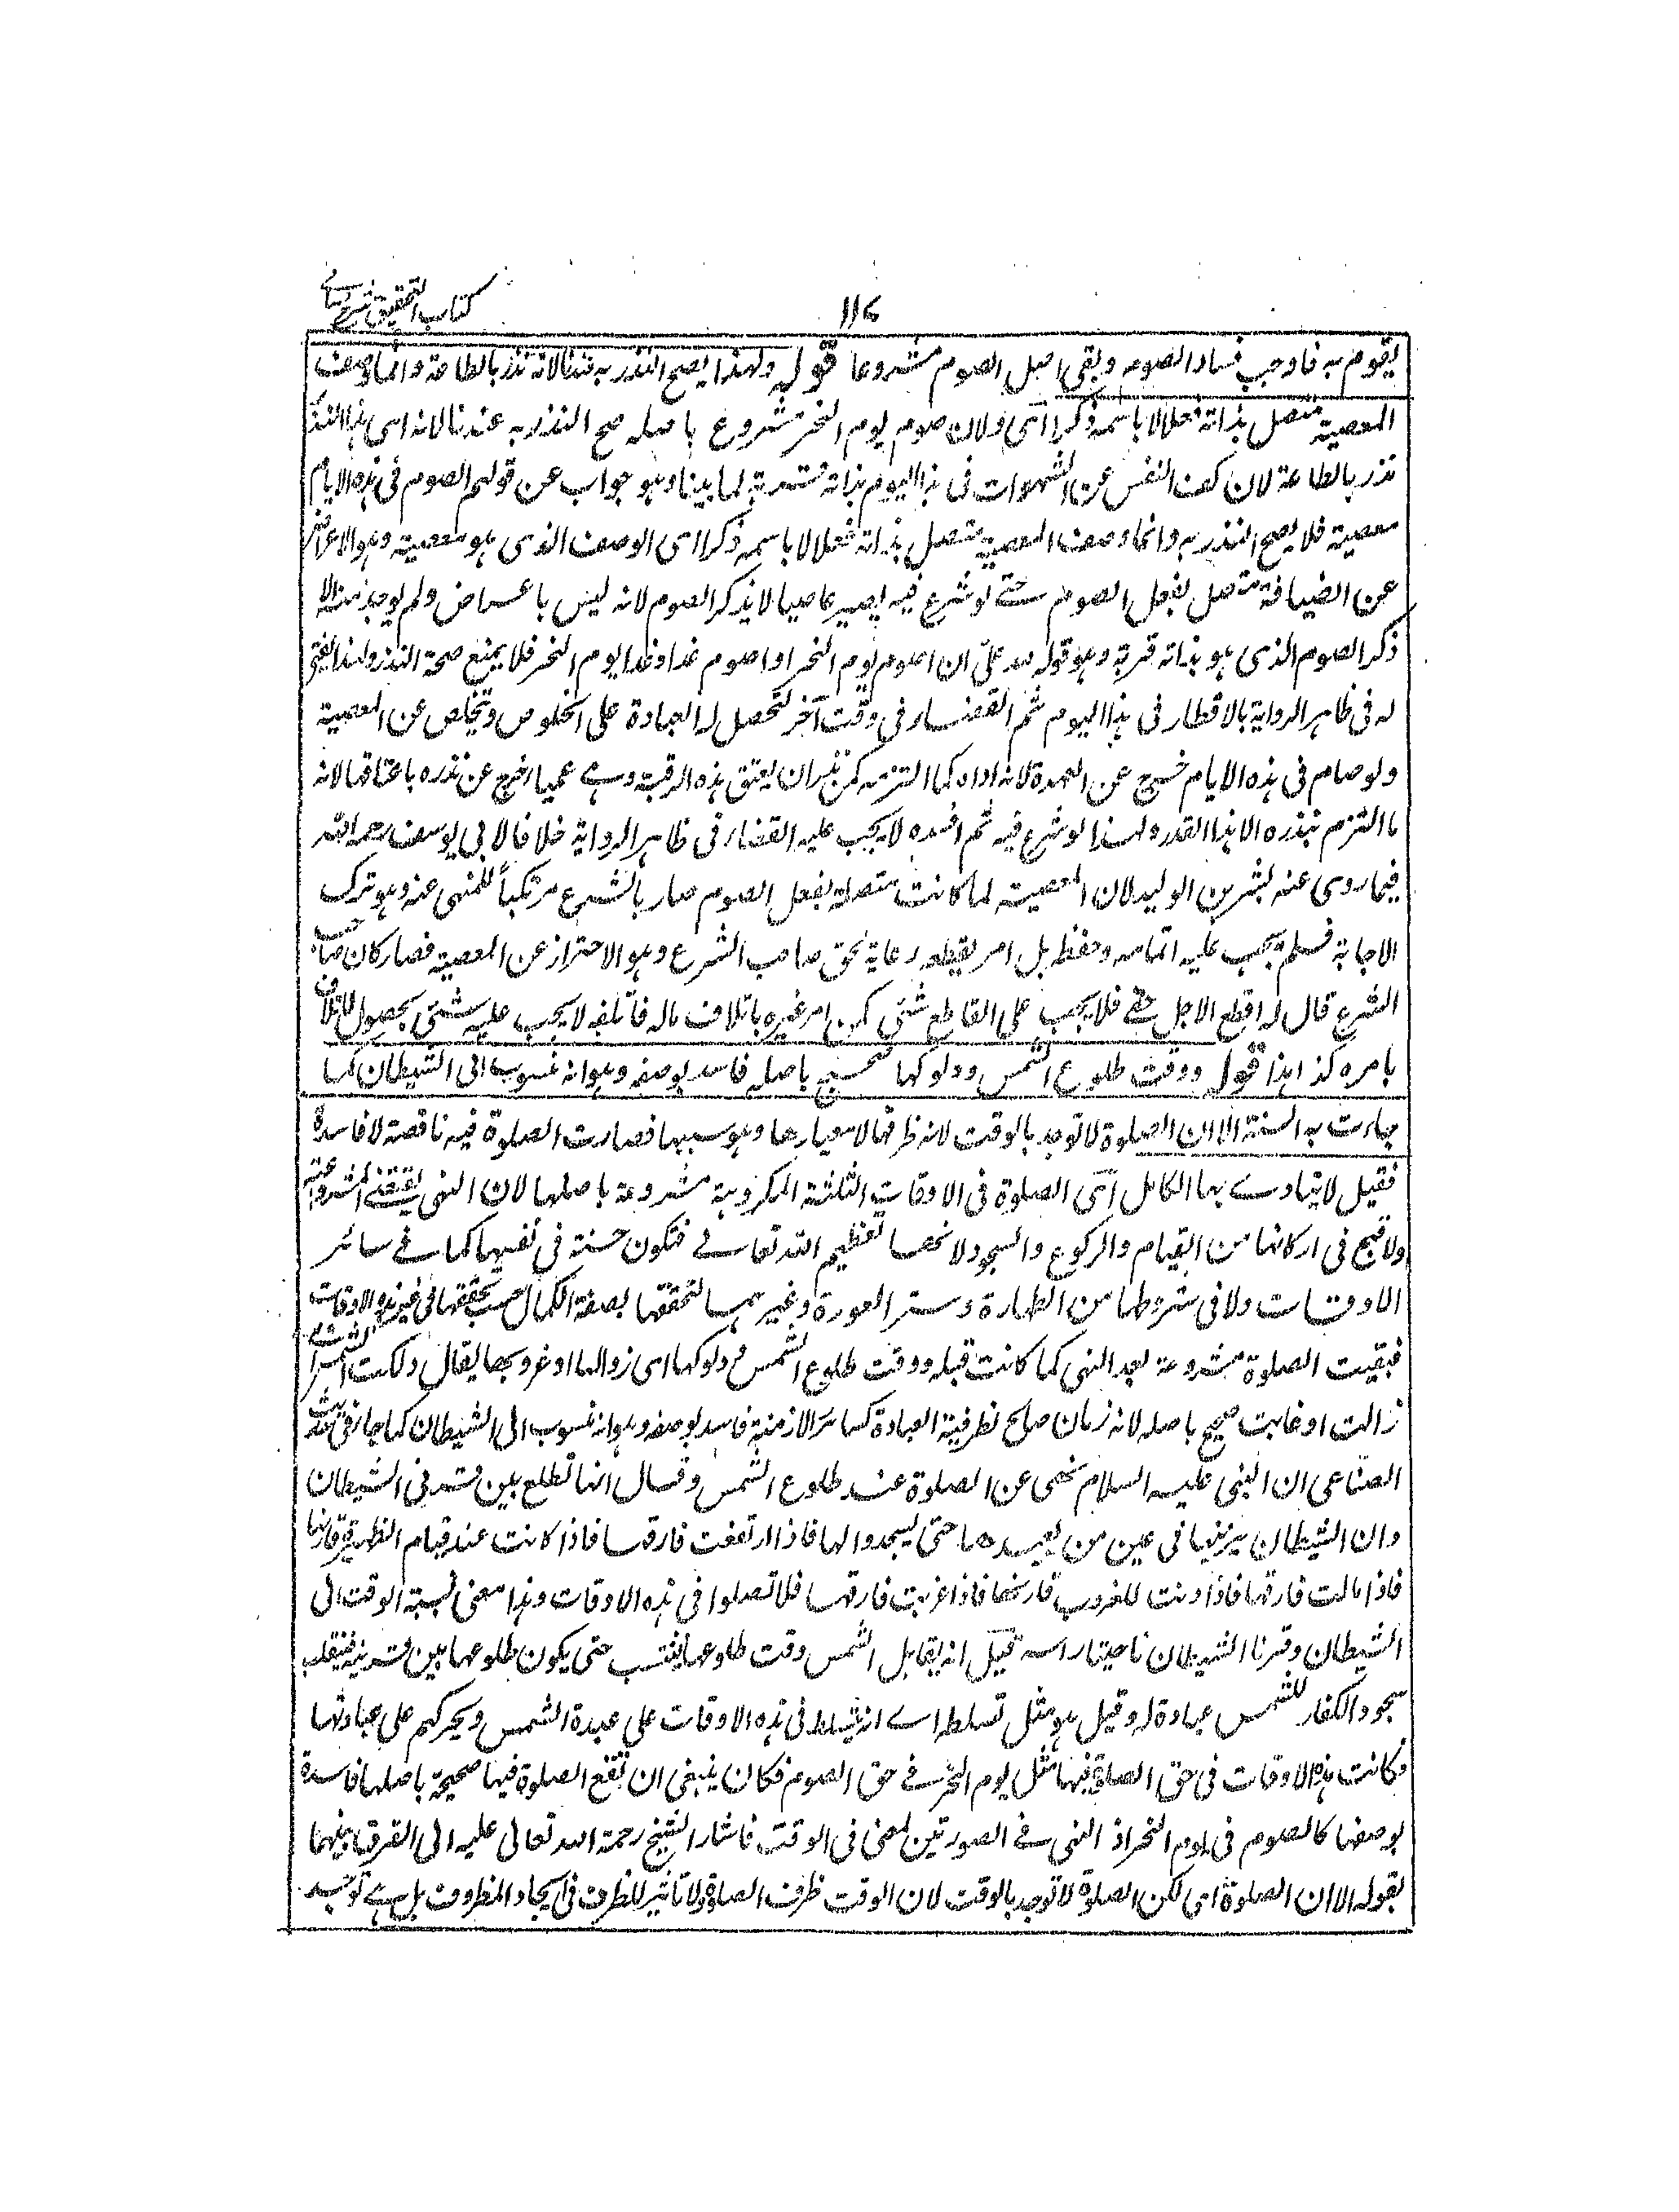 كتاب التحقيق شرح حسامي
١١٧
يقوم به فاوجب فساد الصوم وبقى اصل الصوم مشروعا قوله ولهذا يصح النذر به عندنا لانه نذر بالطاعة وانما وصف
المعصية متصل بذاته فعلا لا باسمه ذكرا اى ولان صوم يوم النحر مشروع باصله صح النذر به عندنا لانه اى هذا النذر
نذر بالطاعة لان كف النفس عن الشهوات فى هذا اليوم بذاته قربة لما بينا وهو جواب عن قولهم الصوم فى هذه الايام
معصية فلا يصح النذر به وانما وصف المعصية متصل بذاته فعلا لا باسمه ذكرا اى الوصف الذى هو معصية وهو الاعراض
عن الضيافة متصل بفعل الصوم حتے لو شرع فيه يصير عاصيا لا بذكر الصوم لانه ليس باعراض ولم يوجد منه الا
ذكر الصوم الذى هو بذاته قربة وهو قوله لله علىّ ان اصوم يوم النحر او اصوم غدا وغدا يوم النحر فلا يمنع صحة النذر ولهذا يفتى
له فى ظاهر الرواية بالافطار فى هذا اليوم ثم القضاء فى وقت آخر لتحصل له العبادة على الخلوص وتخلص عن المعصية
ولو صام فى هذه الايام خرج عن العهدة لانه اداه كما التزمه كمن نذر ان يعتق هذه الرقبة وهے عمياء خرج عن نذره باعتاقها لانه
ما التزم بنذره الا هذا القدر ولهذا لو شرع فيه ثم افسده لا يجب عليه القضاء فى ظاهر الرواية خلافا لابى يوسف رحمه الله
فيما روى عنه بشر بن الوليد لان المعصية لما كانت متصلة بفعل الصوم صار بالشرع مرتكباً للمنهى عنه وهو ترك
الاجابة فلم يجب عليه اتمامه وحفظه بل امر بقطعه رعاية لحق صاحب الشرع وهو الاحتراز عن المعصية فصار كان صاحب
الشرع قال له اقطع لاجل حقے فلا يجب على القاطع شئى كمن امر غيره باتلاف ماله فاتلفه لا يجب عليه شئى بحصول الاتلاف
بامره كذا هذا قوله ووقت طلوع الشمس ودلوكها صحيح باصله فاسد بوصفه وهو انه منسوب الى الشيطان كما
جاءت به السنة الا ان الصلوة لا توجد بالوقت لانه ظرفها لا معيارها وهو سببها فصارت الصلوة فيه ناقصة لا فاسدة
فقيل لا يتادے بها الكامل اى الصلوة فى الاوقات الثلثة المكروهة مشروعة باصلها لان النهى يقتضے المشروعية
ولا قبح فى اركانها من القيام والركوع والسجود لانها تعظيم الله تعالے فتكون حسنة فى نفسها كما فے سائر
الاوقات ولا فى شروطها من الطهارة وستر العورة وغيرهما لتحققها بصفة الكمال حسب تحققها فى غير هذه الاوقات
فبقيت الصلوة مشروعة بعد النهى كما كانت قبله ووقت طلوع الشمس ودلوكها اى زوالها او غروبها يقال دلكت الشمس اے
زالت او غابت صحيح باصله لانه زمان صالح لظرفية العبادة كسائر الازمنة فاسد بوصفه وهو انه منسوب الى الشيطان كما جاء فى حديث
الصنابحى ان النبى عليه السلام نهى عن الصلوة عند طلوع الشمس وقال انها تطلع بين قرنى الشيطان
وان الشيطان يزينها فى عين من يعبدها حتى يسجدوا لها فاذا ارتفعت فارقها فاذا كانت عند قيام الظهيرة قارنها
فاذا مالت فارقها فاذا دنت للغروب قارنها فاذا غربت فارقها فلا تصلوا فى هذه الاوقات وهذا معنى نسبة الوقت الى
الشيطان وقرنا الشيطان ناحيتا راسه قيل انه يقابل الشمس وقت طلوعها فينتصب حتى يكون طلوعها بين قرنيه فينقلب
سجود الكفار للشمس عبادة له وقيل هو مثل تسلطه اے انه يتسلط فى هذه الاوقات على عبدة الشمس ويحركهم على عبادتها
فكانت هذه الاوقات فى حق الصلوة فيها مثل يوم النحر فے حق الصوم فكان ينبغى ان تقع الصلوة فيها صحيحة باصلها فاسدة
بوصفها كالصوم فى يوم النحر اذ النهى فے الصورتين لمعنى فى الوقت فاشار الشيخ رحمة الله تعالى عليه الى الفرق بينهما
بقوله الا ان الصلوة اى لكن الصلوة لا توجد بالوقت لان الوقت ظرف الصلوة ولا تاثير للظرف فى ايجاد المظروف بل هے توجد